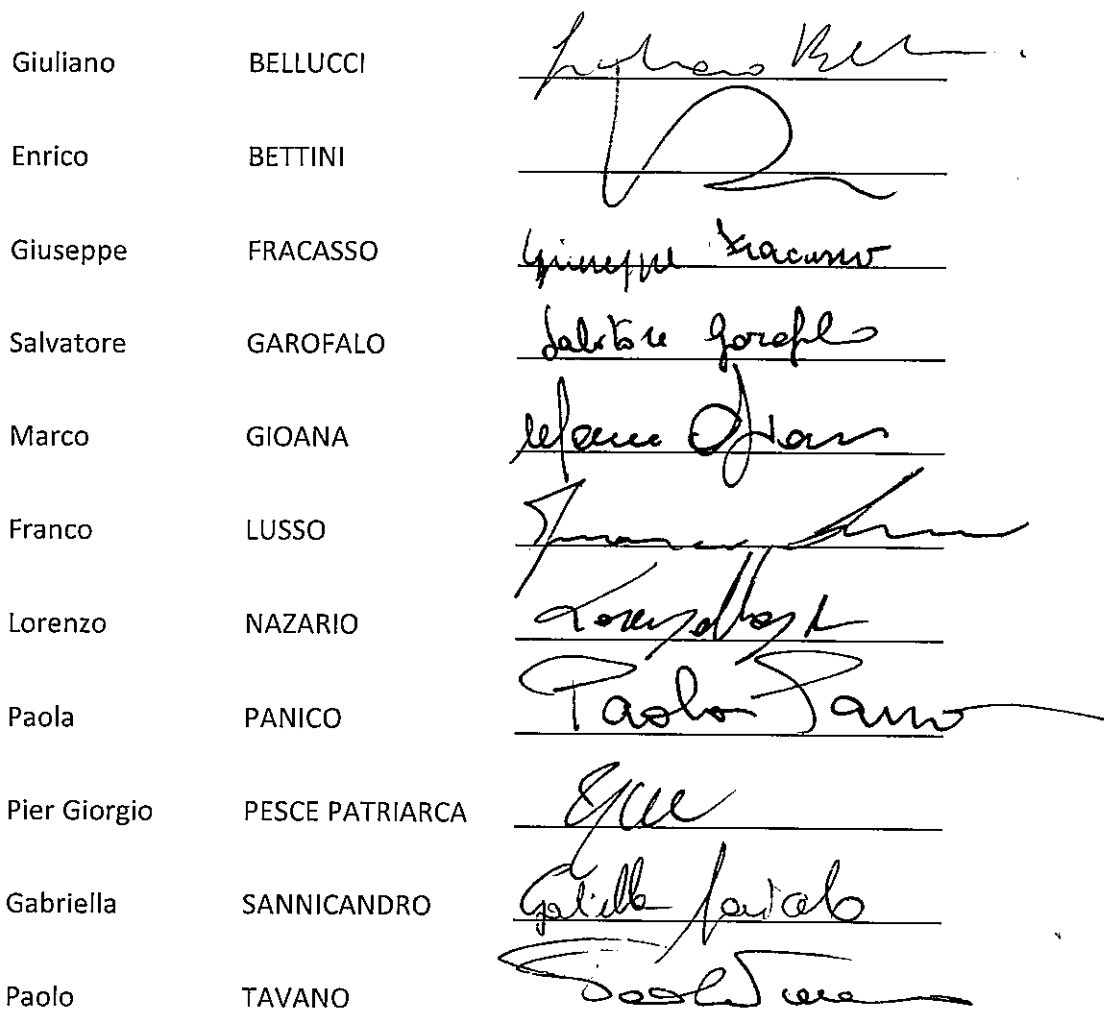 Giuliano BELLUCCI
Enrico BETTINI
Giuseppe FRACASSO Giuseppe Fracasso
Salvatore GAROFALO Salvatore Garofalo
Marco GIOANA Marco
Franco LUSSO Franco
Lorenzo NAZARIO Lorenzo
Paola PANICO Paola Panico
Pier Giorgio PESCE PATRIARCA
Gabriella SANNICANDRO Gabriella
Paolo TAVANO Paolo